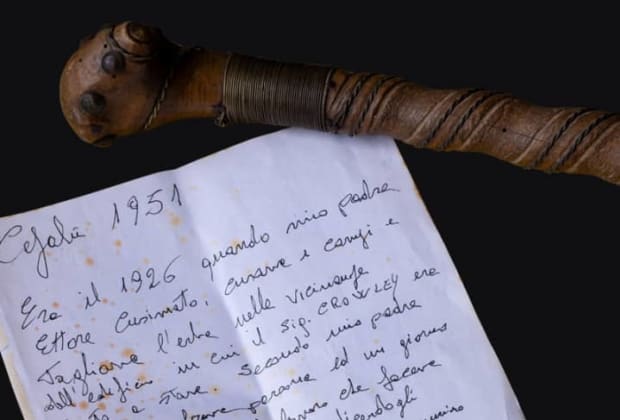 Cefalù 1951
Era il 1926 quando mio padre
Ettore Cusimato, curava i campi e
Tagliava l'erba nelle vicinanze
dall'edificio in cui il Sig. CROWLEY era
a stare. Secondo mio padre
persone ed un giorno
che faceva
dicendogli